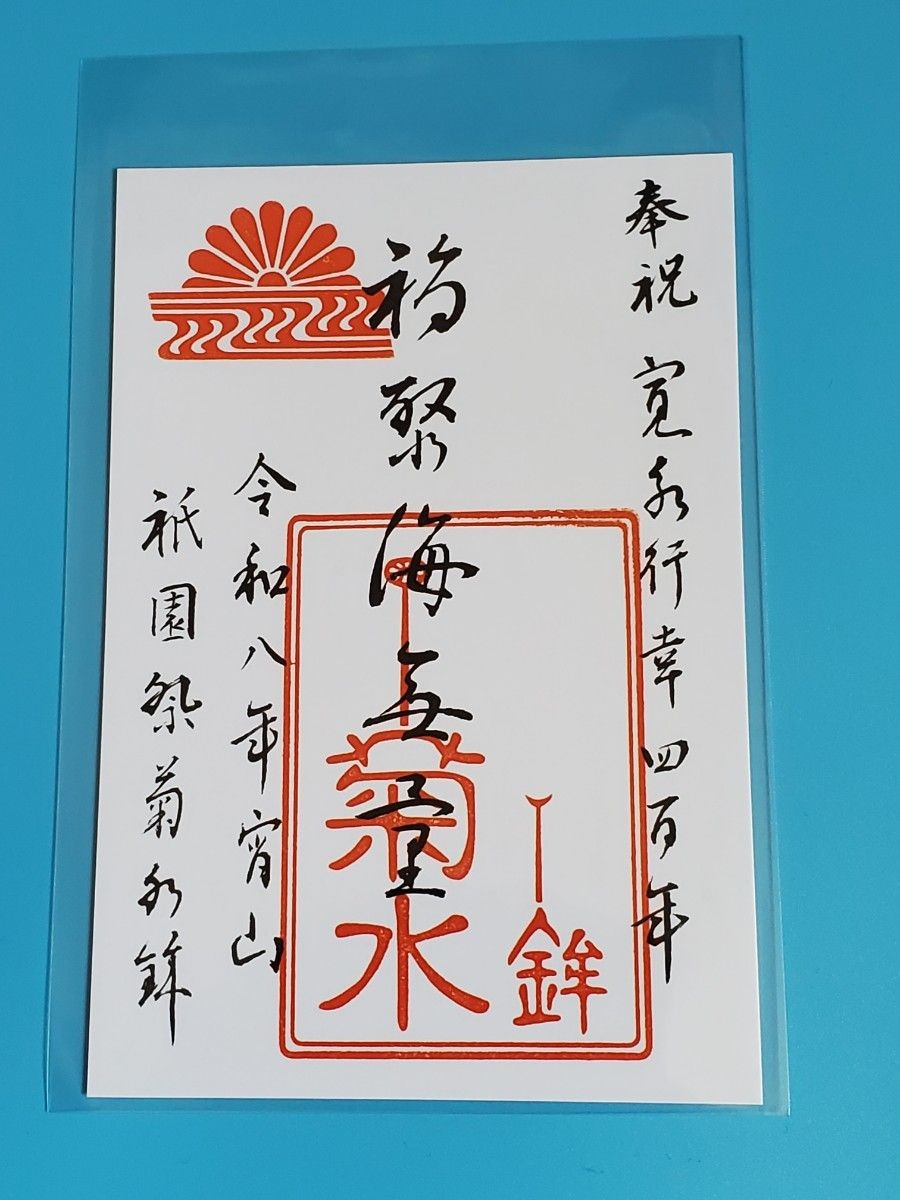 奉祝 寛永行幸四百年
福聚海無量
令和八年宵山
祇園祭菊水鉾
菊水
鉾